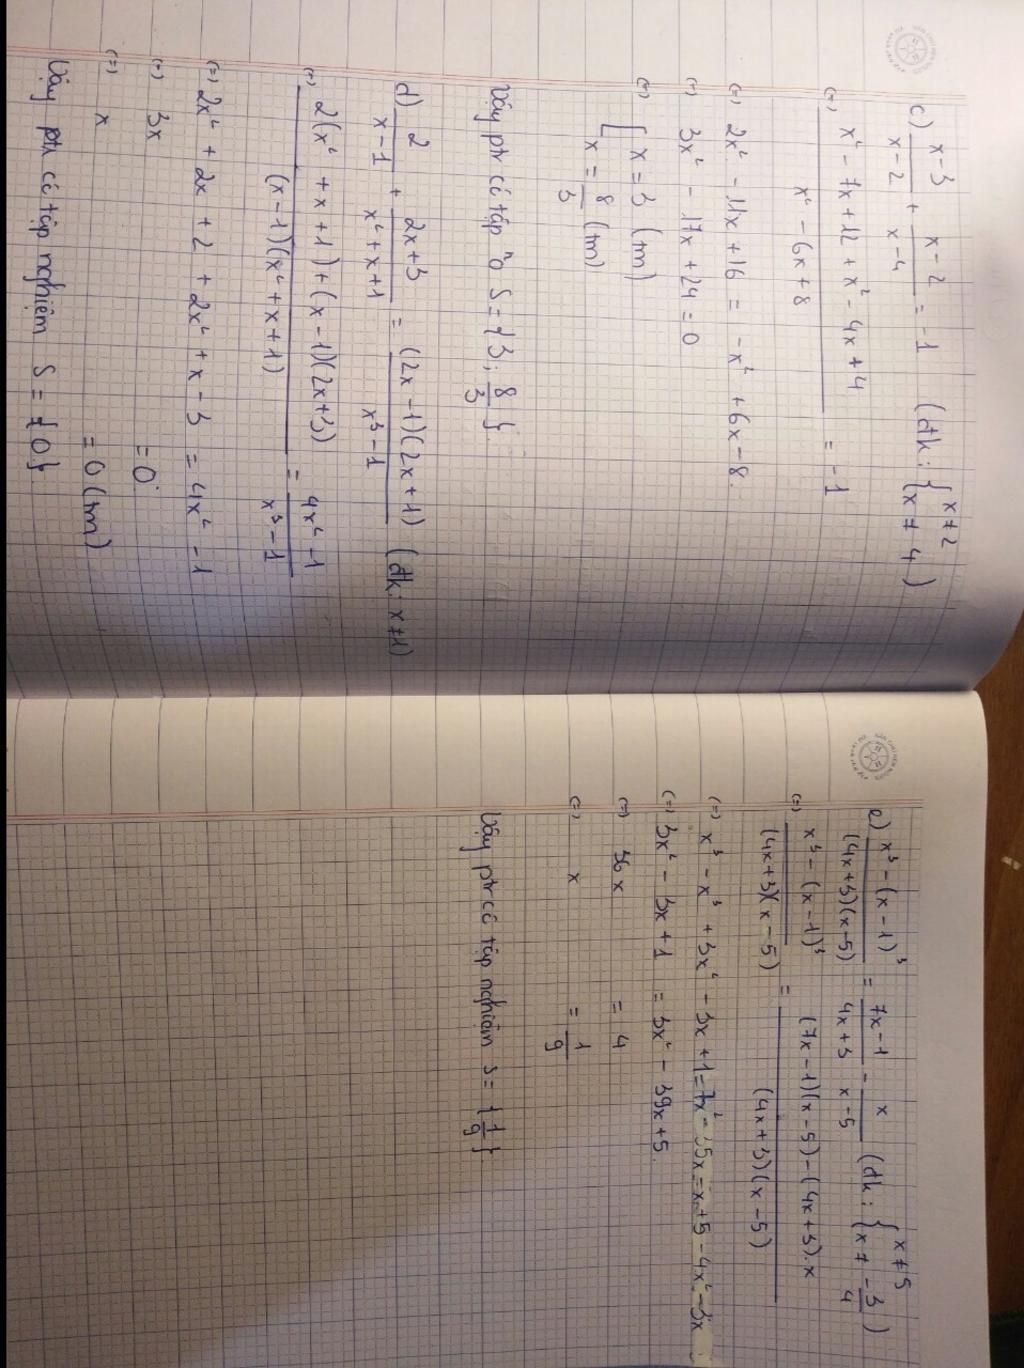 c) x-3/x-2 + x-2/x-4 = -1 (đk: { x ≠ 2 x ≠ 4 )
(=) x² - 7x + 12 + x² - 4x + 4 / x² - 6x + 8 = -1
(=) 2x² - 11x + 16 = -x² + 6x - 8.
(=) 3x² - 17x + 24 = 0
(=) [ x = 3 (tm)
x = 8/3 (tm)
Vậy ptr có tập n⁰ S = {3; 8/3}.
d) 2/x-1 + 2x+3/x²+x+1 = (2x-1)(2x+1)/x³-1 (đk: x ≠ 1)
(=) 2(x² + x + 1) + (x-1)(2x+3) / (x-1)(x²+x+1) = 4x²-1/x³-1
(=) 2x² + 2x + 2 + 2x² + x - 3 = 4x² - 1
(=) 3x = 0.
(=) x = 0 (tm)
Vậy ptr có tập nghiệm S = {0}.
e) x³-(x-1)³/(4x+3)(x-5) = 7x-1/4x+3 - x/x-5 (đk: { x ≠ 5 x ≠ -3/4 )
(=) x³-(x-1)³/(4x+3)(x-5) = (7x-1)(x-5)-(4x+3).x/(4x+3)(x-5)
(=) x³ - x³ + 3x² - 3x + 1 = 7x² - 35x = x + 5 - 4x² - 3x
(=) 3x² - 3x + 1 = 3x² - 39x + 5.
(=) 36x = 4
(=) x = 1/9
Vậy ptr có tập nghiệm S = {1/9}.